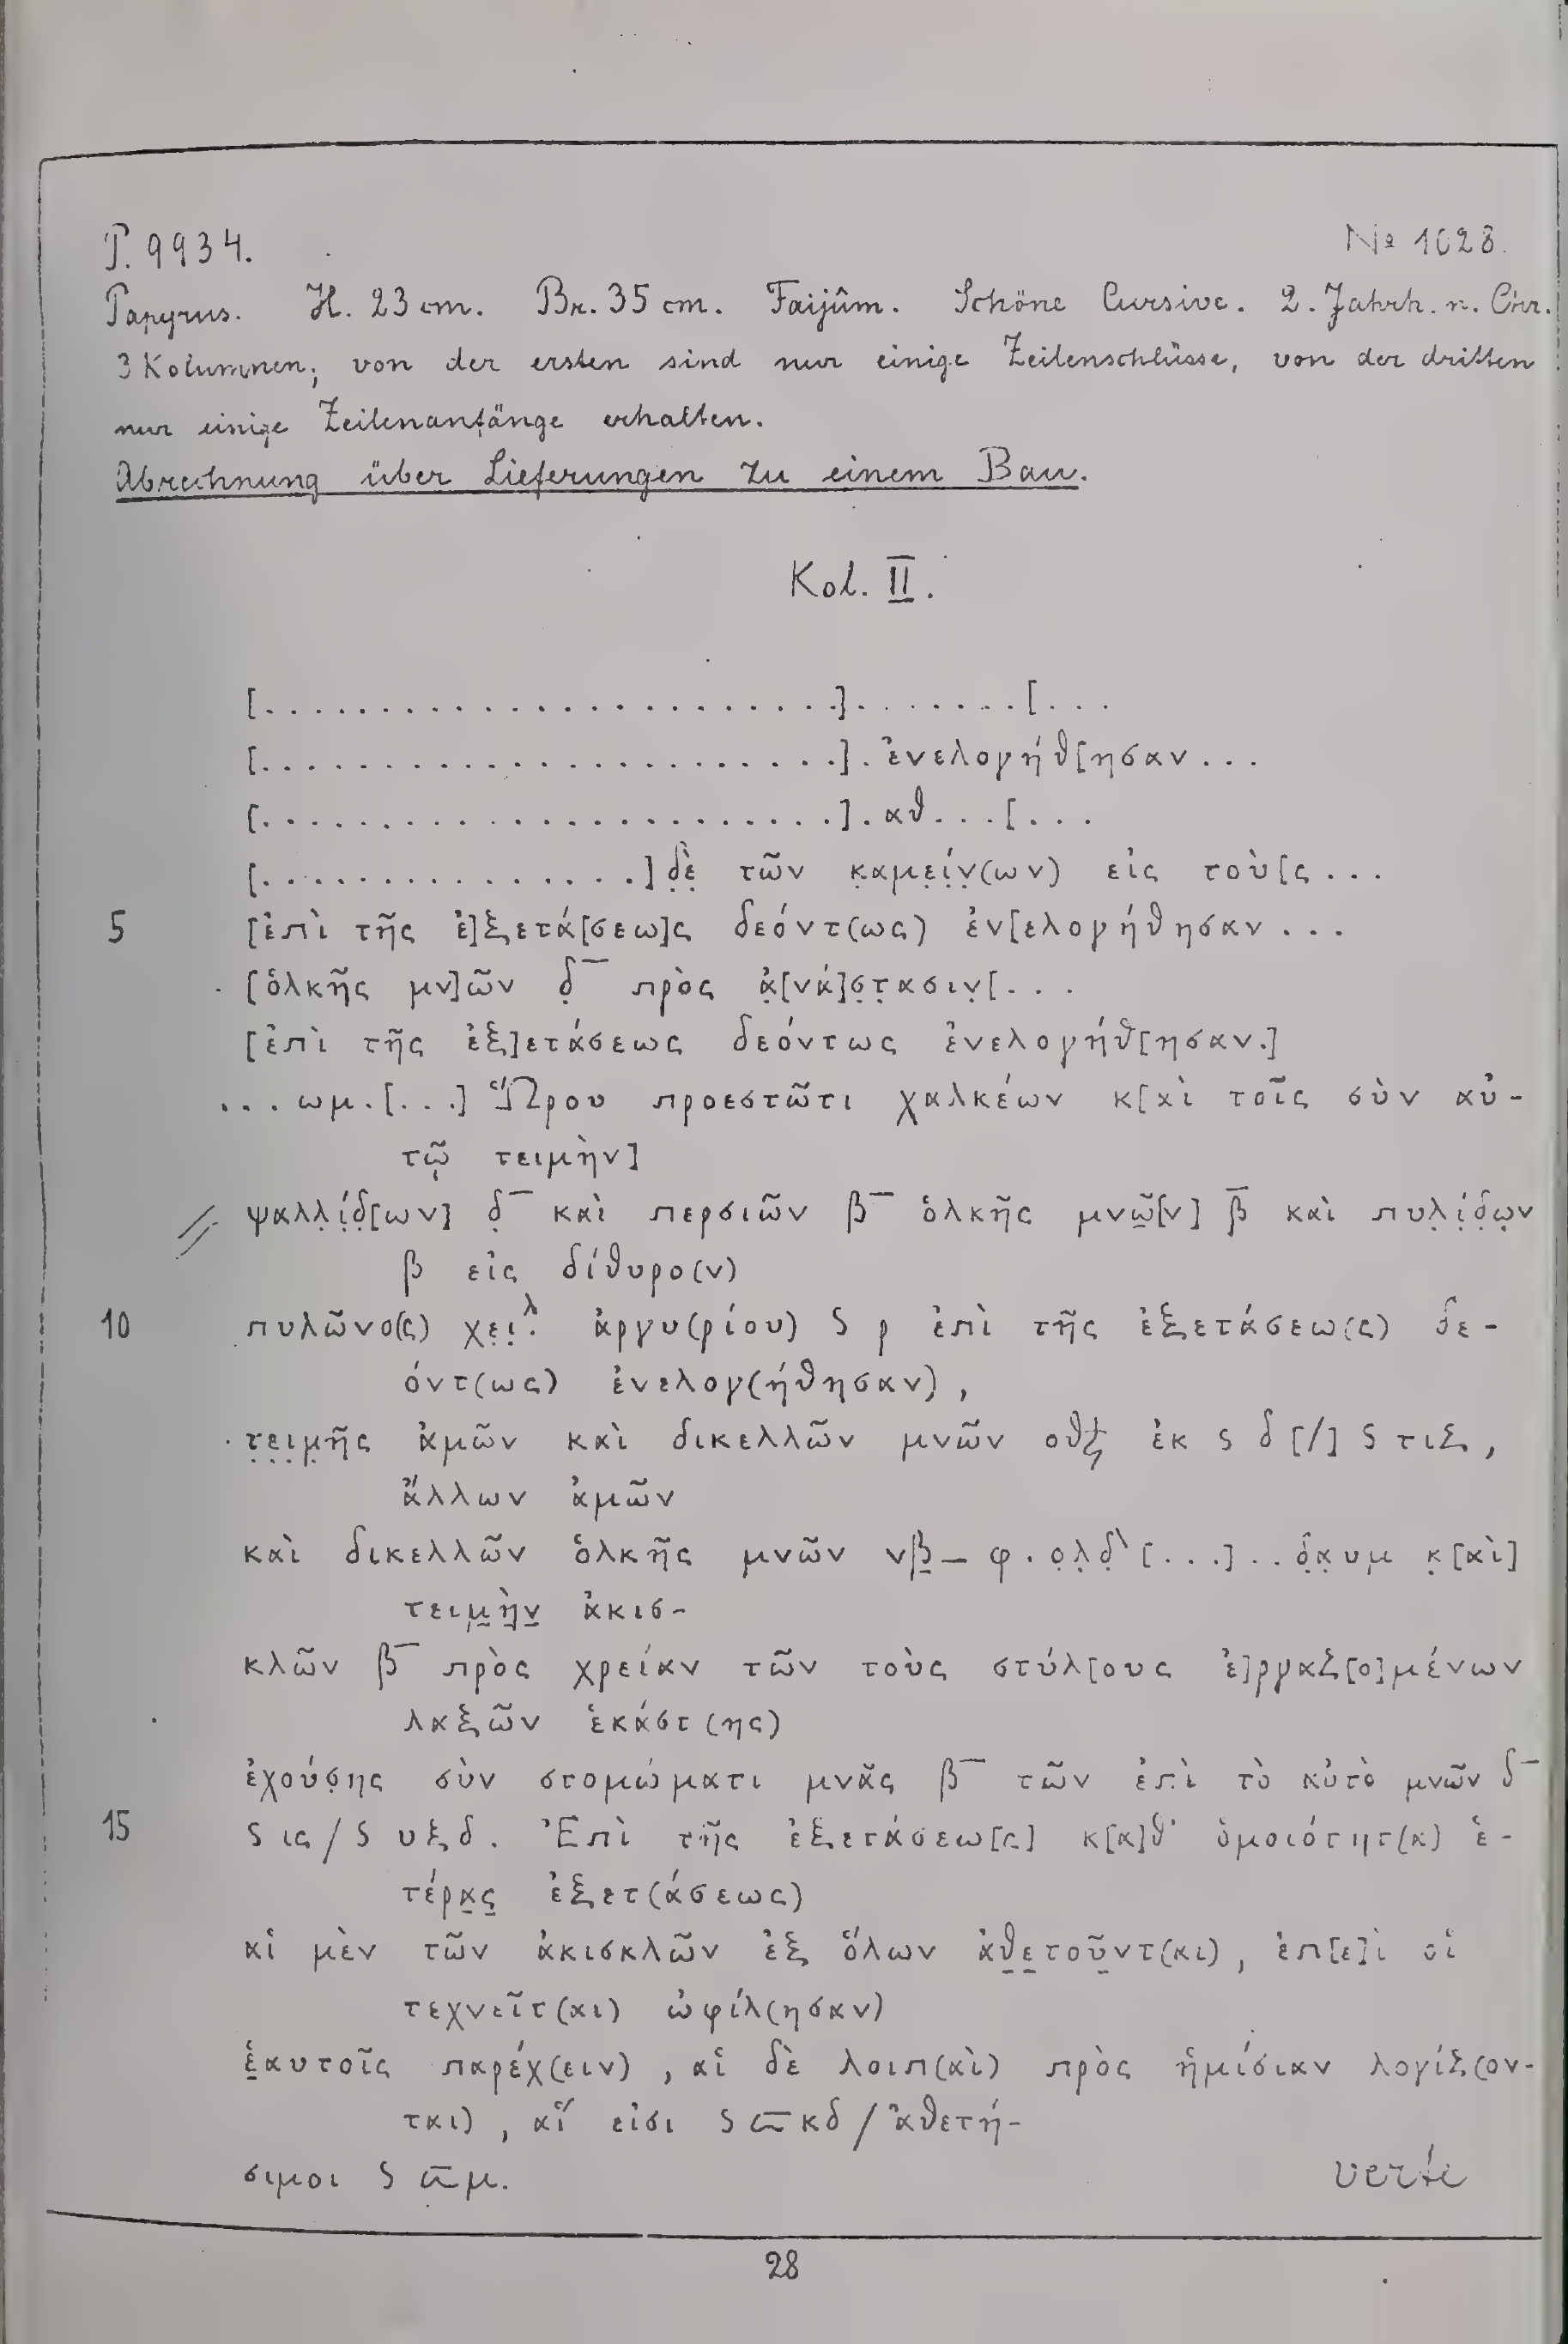 P. 9934. № 1028.
Papyrus. H. 23 cm. Br. 35 cm. Faijûm. Schöne Cursive. 2. Jahrh. n. Chr.
3 Kolumnen; von der ersten sind nur einige Zeilenschlüsse, von der dritten
nur einige Zeilenanfänge erhalten.
Abrechnung über Lieferungen zu einem Bau.
Kol. II.
[. . . . . . . . . . . . . . . . . . . . . . . .] . . . . . . . [. . .
[. . . . . . . . . . . . . . . . . . . . . . . .] . ἐνελογήθ[ησαν . . .
[. . . . . . . . . . . . . . . . . . . . . . . .] . αθ . . . [. . .
[. . . . . . . . . . . . . . . .] δ̣ὲ̣ τῶν κ̣αμε̣ί̣ν̣(ων) εἰς τοὺ[ς . . .
5 [ἐπὶ τῆς ἐ]ξετά[σεω]ς δεόντ(ως) ἐν[ελογήθησαν . . .
[ὁλκῆς μν]ῶν δ̣̅ πρὸς ἀ̣[νά]σ̣τ̣ασιν̣[. . .
[ἐπὶ τῆς ἐξ]ετάσεως δεόντως ἐνελογήθ[ησαν.]
. . . ωμ . [. . .] Ὥρου προεστῶτι χαλκέων κ[αὶ τοῖς σὺν αὐ-
τῷ τειμὴν]
ψαλλ̣ί̣δ̣[ων] δ̣̅ καὶ περσιῶν β̅ ὁλκῆς μνῶ̣[ν] β̅ καὶ πυλ̣ί̣δ̣ω̣ν
β εἰς δίθυρο(ν)
10 πυλῶνο(ς) χε̣ι̣λ̣ ἀργυ(ρίου) S ρ ἐπὶ τῆς ἐξετάσεω(ς) δε-
όντ(ως) ἐνελογ(ήθησαν),
τ̣ε̣ι̣μ̣ῆς ἀμῶν καὶ δικελλῶν μνῶν οθ ἐκ S δ [/] S τιξ,
ἄλλων ἀμῶν
καὶ δικελλῶν ὁλκῆς μνῶν νβ̣ — φ . ο̣λ̣δ̣` [. . .] . . δ̣α̣υμ κ̣[αὶ]
τειμ̣ὴ̣ν̣ ἀκισ-
κλῶν β̅ πρὸς χρείαν τῶν τοὺς στύλ[ους ἐ]ργαζ[ο]μένων
λαξῶν ἑκάστ(ης)
ἐχούσ̣ης σὺν στομώματι μνᾶς β̅ τῶν ἐπὶ τὸ αὐτὸ μνῶν δ̅
15 S ις / S υξδ. Ἐπὶ τῆς ἐξετάσεω[ς] κ[α]θ' ὁμοιότητ(α) ἑ-
τέρα̣ς̣ ἐξετ(άσεως)
αἱ μὲν τῶν ἀκισκλῶν ἐξ ὅλων ἀθ̣ε̣τοῦ̣ντ(αι), ἐπ[ε]ὶ οἱ
τεχνεῖτ(αι) ὠφίλ(ησαν)
ἑ̣αυτοῖς παρέχ(ειν), αἱ δὲ λοιπ(αὶ) πρὸς ἡμίσιαν λογίζ(ον-
ται), αἵ εἰσι S ϖ κδ / ἀθετή-
σιμοι S ϖμ. verte
28